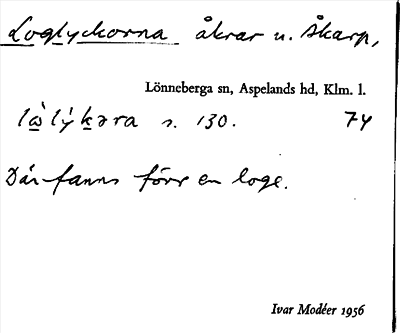 Loglyckorna åkrar u. Skarp,
Lönneberga sn, Aspelands hd, Klm. l.
làlýkəra s. 130. 74
Där fanns förr en loge.
Ivar Modéer 1956